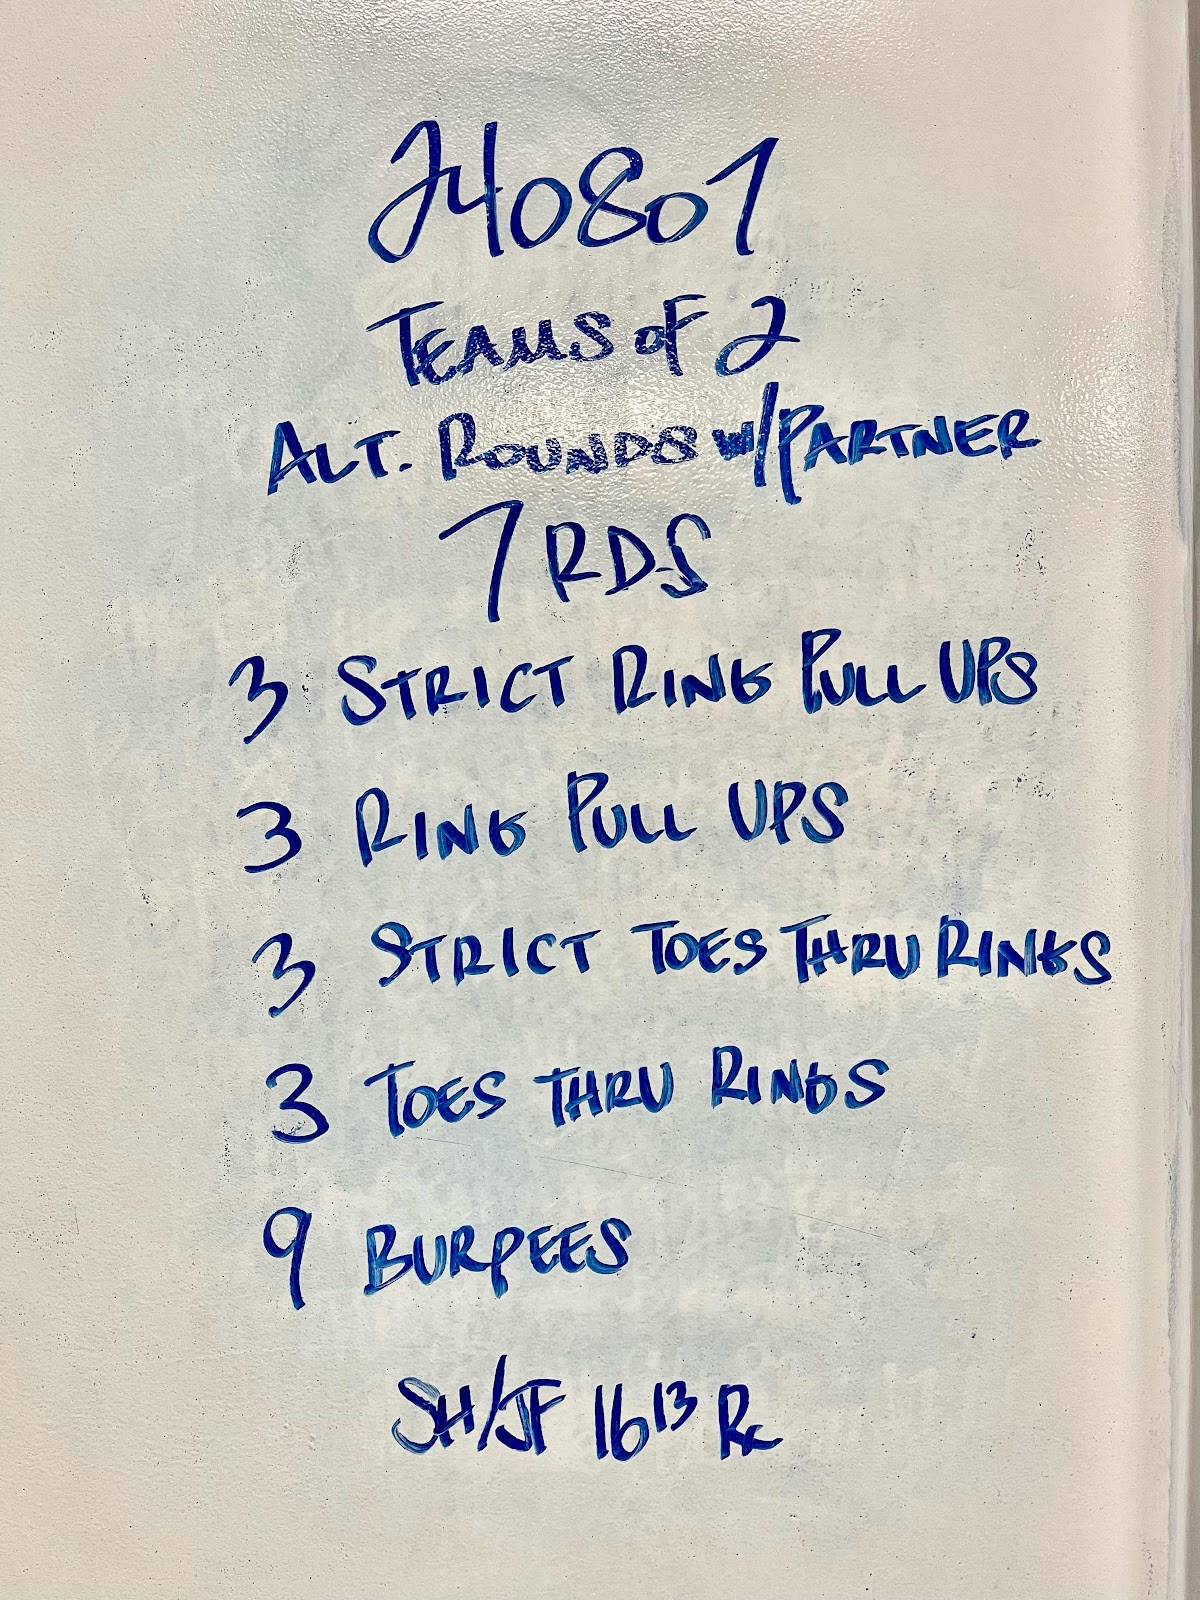 240807
TEAMS OF 2
ALT. ROUNDS W/PARTNER
7 RDS
3 STRICT RING PULL UPS
3 RING PULL UPS
3 STRICT TOES THRU RINGS
3 TOES THRU RINGS
9 BURPEES
SH/JF 16¹³ Rx